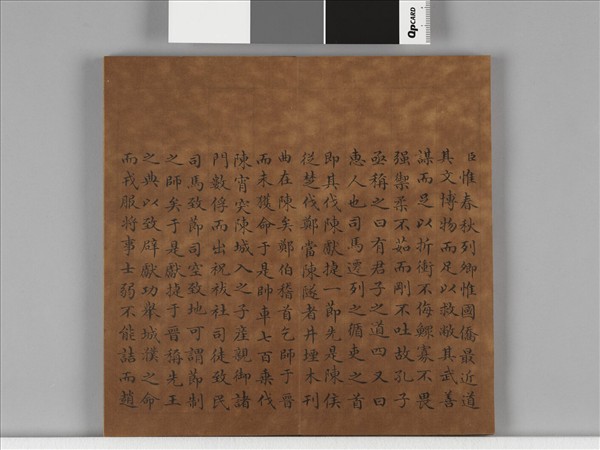 臣惟春秋列卿惟國僑最近道
其文博物而足以救敝其武善
謀而足以折衝不侮鰥寡不畏
强禦柔不茹而剛不吐故孔子
亟稱之曰有君子之道四又曰
惠人也司馬遷列之循吏之首
即其伐陳獻捷一節先是陳侯
從楚伐鄭當陳隧者井堙木刊
曲在陳矣鄭伯稽首乞師于晉
而未獲命于是帥車七百乘伐
陳宵突陳城入之子產親御諸
門數俘而出祝祓社司徒致民
司馬致節司空致地可謂節制
之師矣于是獻捷于晉稱先王
之典以致辟獻功舉城濮之命
而戎服將事士弱不能詰而趙
QPCARD